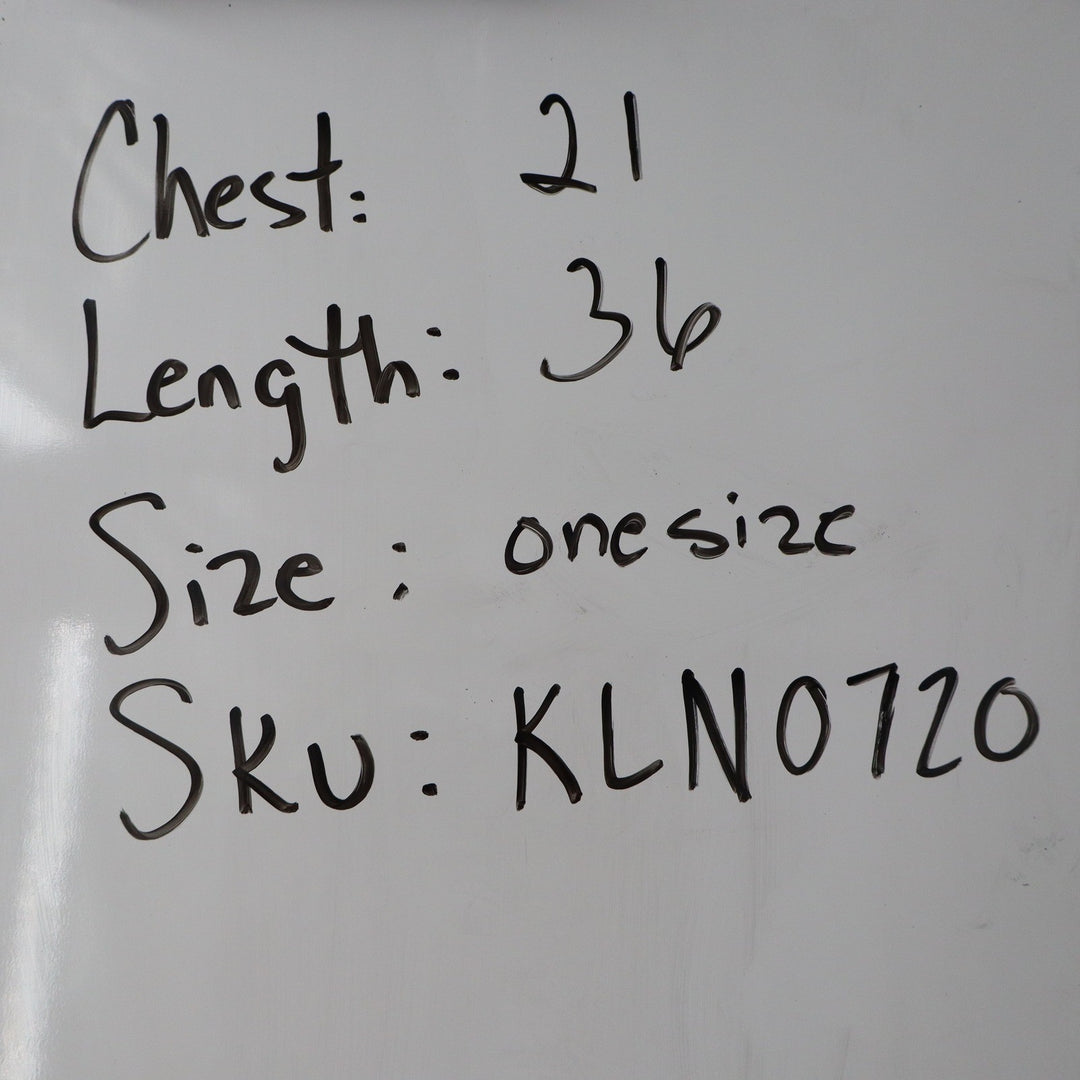 Chest: 21
Length: 36
Size: onesize
Sku: KLN0720